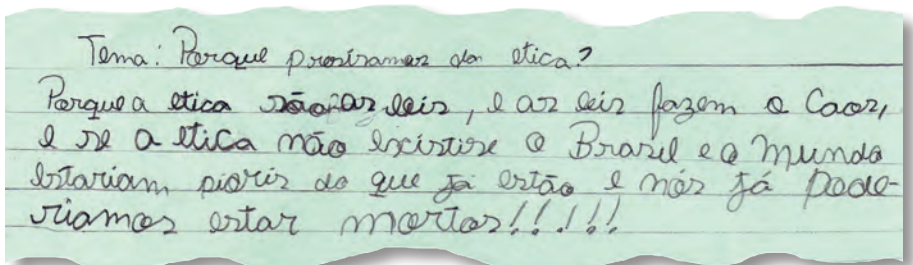 Tema: Porque presisamos da etica?
Porque a etica são as leis, e as leis fazem o Caos,
e se a etica não existise o Brasil e o mundo
estariam pioris do que já estão e nós já pode-
riamos estar mortos!!!!!